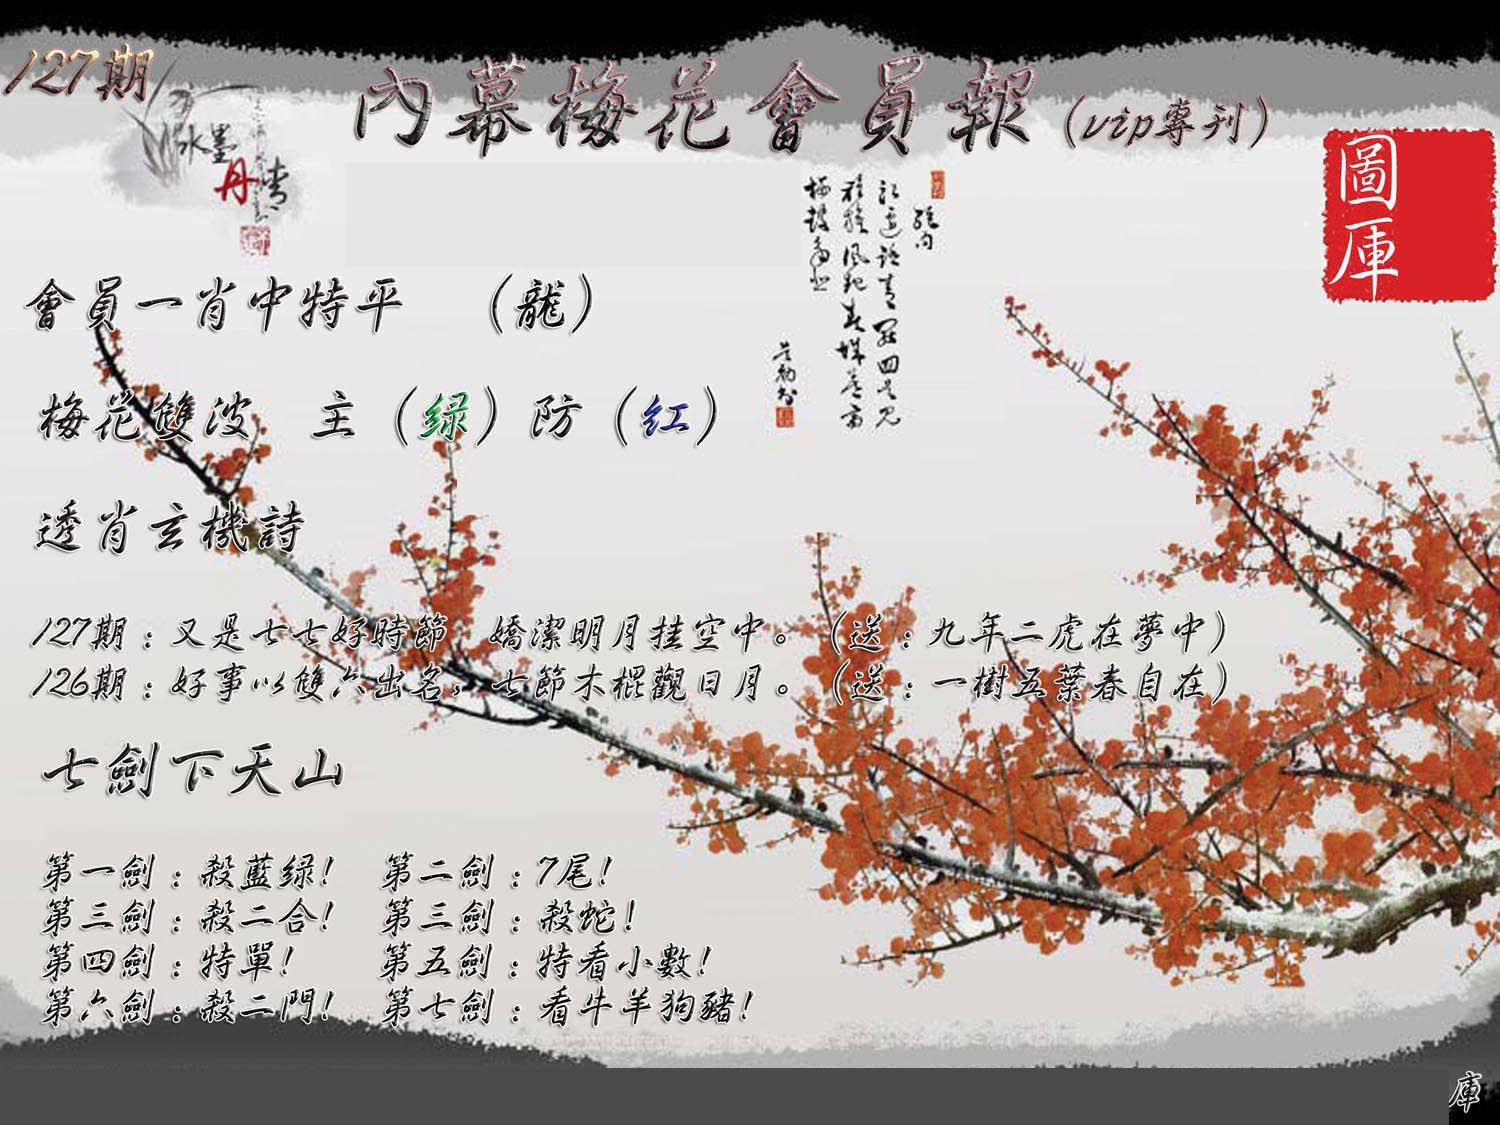 127期
內幕梅花會員報(vip專刊)
水墨
丹青
圖庫
會員一肖中特平 (龍)
梅花雙波 主(绿)防(红)
透肖玄機詩
127期:又是七七好時節 嬌潔明月挂空中。(送:九年二虎在夢中)
126期:好事以雙六出名,七節木棍觀日月。(送:一樹五葉春自在)
七劍下天山
第一劍:殺藍绿! 第二劍:7尾!
第三劍:殺二合! 第三劍:殺蛇!
第四劍:特單! 第五劍:特看小數!
第六劍:殺二門! 第七劍:看牛羊狗豬!
庫